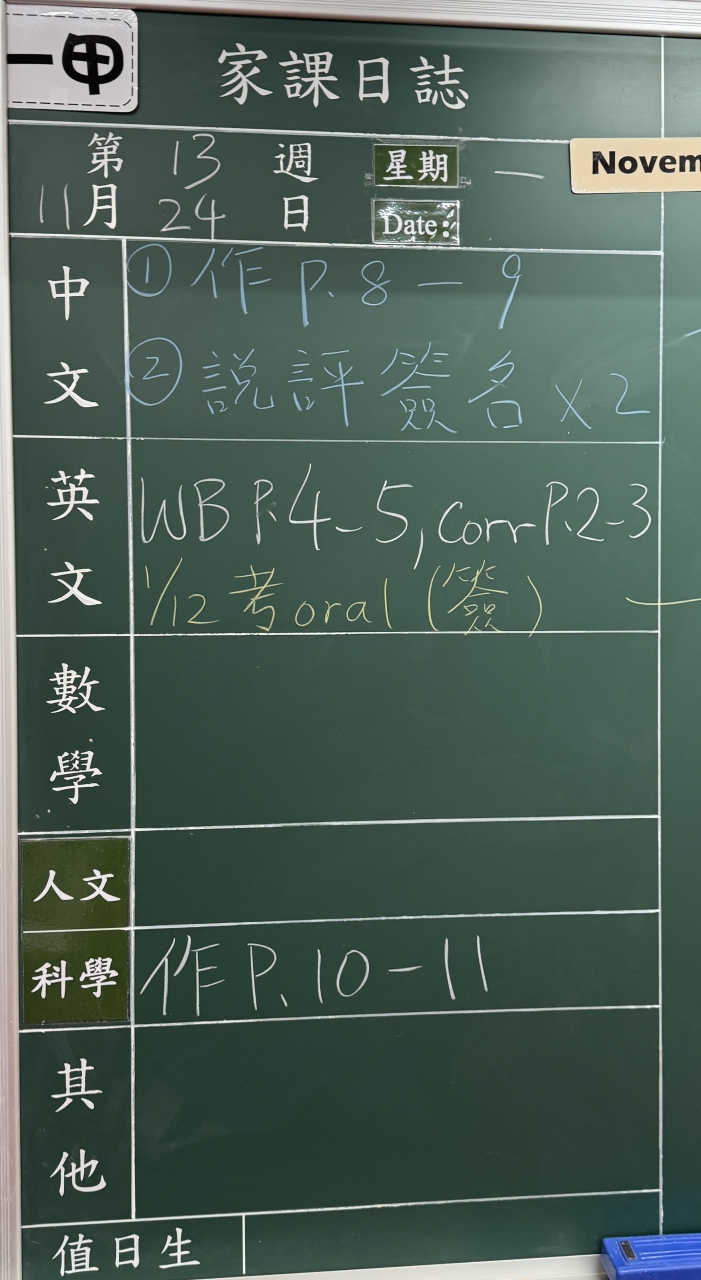 一甲
家課日誌
第 13 週 星期 一
Novem
11月 24 日 Date:
中文
① 作 P. 8 – 9
② 說評簽名 x 2
英文
WB P.4-5, corr P.2-3
1/12 考 oral (簽)
數學
人文
科學
作 P. 10 – 11
其他
值日生